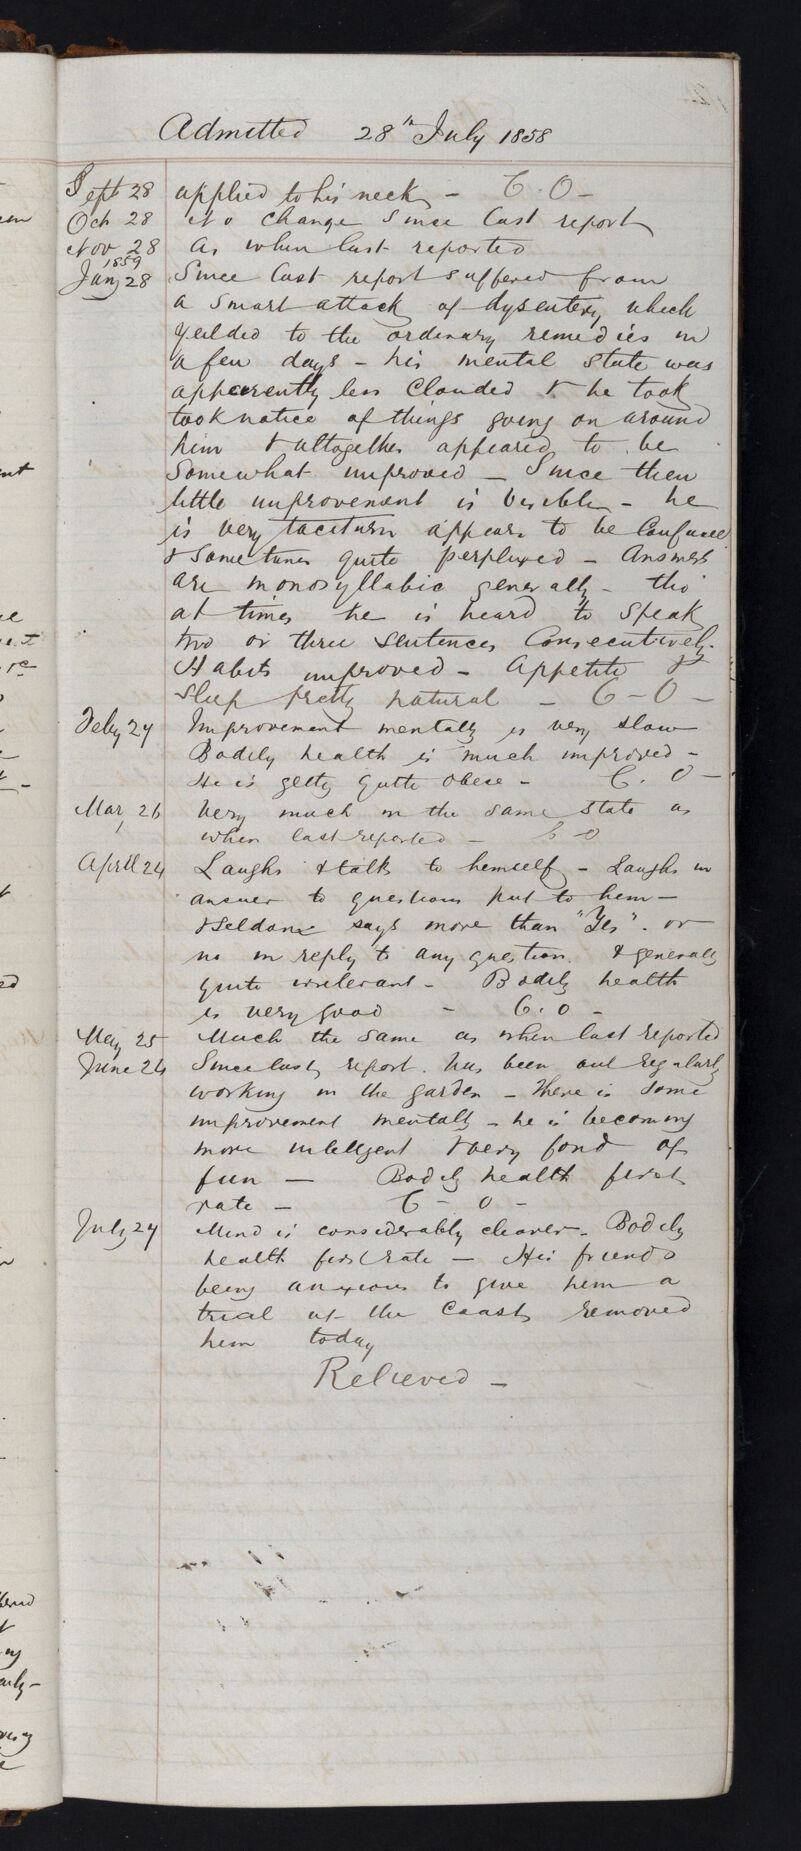 Admitted 28th July 1858
Sept 28 applied to his neck - C. O -
Oct 28 No change since last report
Nov 28 As when last reported
1859
Jany 28 Since last report suffered from
a smart attack of dysentery which
yeilded to the ordinary remedies in
a few days - his mental state was
apparently less clouded & he took
took notice of things going on around
him & altogether appeared to be
somewhat improved - Since then
little improvement is visible - he
is very taciturn appears to be confused
& sometimes quite perplexed - Answers
are monosyllabic generally - tho'
at times he is heard to speak
two or three sentences consecutively -
Habits improved - Appetite &
sleep pretty natural - C - O -
Feby 24 Improvement mentally is very slow
Bodily health is much improved -
He is getty quite obese - C. O -
Mar 26 Very much in the same state as
when last reported - C O
April 24 Laughs & talks to himself - Laughs in
answer to questions put to him -
& seldom says more than "Yes" - or
no in reply to any question. & generally
quite irrelevant - Bodily health
is very good - C. O -
May 25 Much the same as when last reported
June 24 Since last report. has been out regularly
working in the garden - There is some
improvement mentally - he is becoming
more intelligent & very fond of
fun - Bodily health first
rate - C - O -
July 24 Mind is considerably clearer - Bodily
health first rate - His friends
being anxious to give him a
trial at the Coast, removed
him today
Relieved -